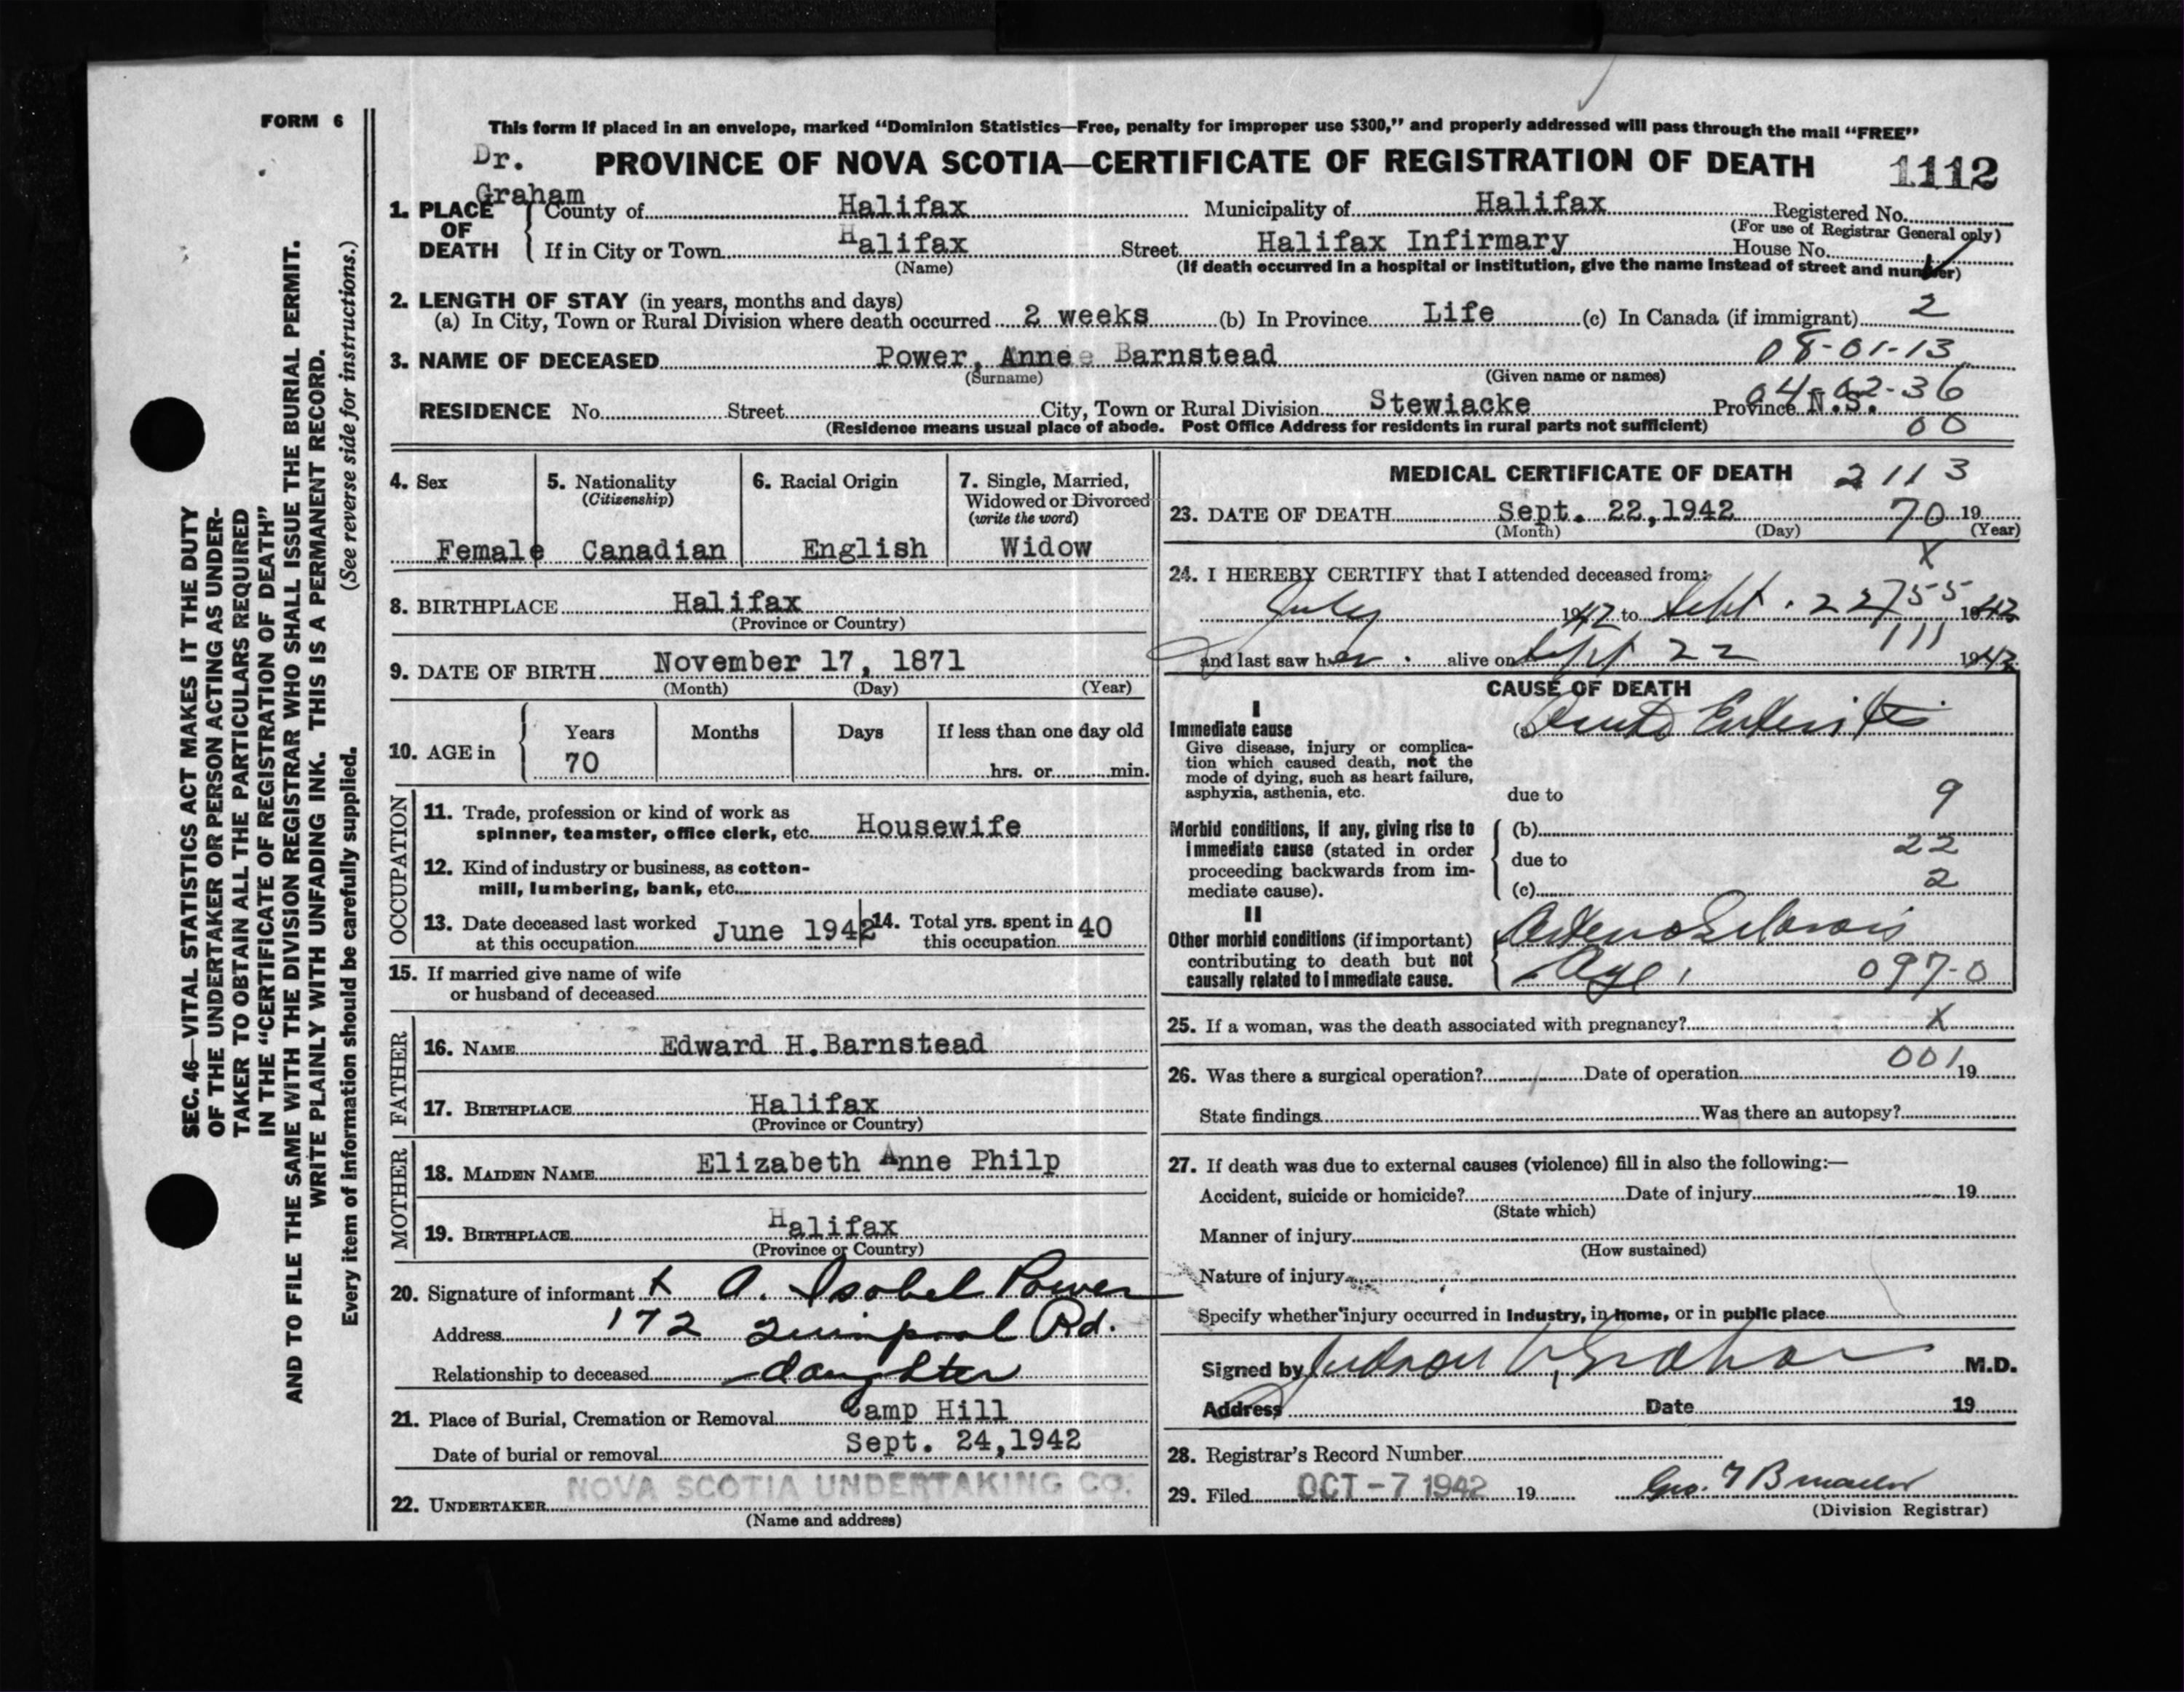 FORM 6
This form if placed in an envelope, marked “Dominion Statistics—Free, penalty for improper use $300,” and properly addressed will pass through the mail “FREE”
Dr.
Graham
PROVINCE OF NOVA SCOTIA—CERTIFICATE OF REGISTRATION OF DEATH 1112
1. PLACE OF DEATH
County of Halifax Municipality of Halifax Registered No.
(For use of Registrar General only)
If in City or Town Halifax Street Halifax Infirmary House No.
(Name) (If death occurred in a hospital or institution, give the name instead of street and number)
2. LENGTH OF STAY (in years, months and days)
(a) In City, Town or Rural Division where death occurred 2 weeks (b) In Province Life (c) In Canada (if immigrant) 2
3. NAME OF DECEASED Power, Anne Barnstead 08-01-13
(Surname) (Given name or names)
04-02-36
RESIDENCE No. Street City, Town or Rural Division Stewiacke Province N.S.
(Residence means usual place of abode. Post Office Address for residents in rural parts not sufficient) 00
4. Sex
Female
5. Nationality
(Citizenship)
Canadian
6. Racial Origin
English
7. Single, Married,
Widowed or Divorced
(write the word)
Widow
8. BIRTHPLACE Halifax
(Province or Country)
9. DATE OF BIRTH November 17, 1871
(Month) (Day) (Year)
10. AGE in
Years Months Days If less than one day old
70 hrs. or min.
OCCUPATION
11. Trade, profession or kind of work as
spinner, teamster, office clerk, etc. Housewife
12. Kind of industry or business, as cotton-
mill, lumbering, bank, etc.
13. Date deceased last worked
at this occupation June 1942
14. Total yrs. spent in
this occupation 40
15. If married give name of wife
or husband of deceased
FATHER
16. NAME Edward H. Barnstead
17. BIRTHPLACE Halifax
(Province or Country)
MOTHER
18. MAIDEN NAME Elizabeth Anne Philp
19. BIRTHPLACE Halifax
(Province or Country)
20. Signature of informant x A. Isobel Power
Address 172 Quinpool Rd.
Relationship to deceased daughter
21. Place of Burial, Cremation or Removal Camp Hill
Date of burial or removal Sept. 24, 1942
22. UNDERTAKER NOVA SCOTIA UNDERTAKING CO.
(Name and address)
MEDICAL CERTIFICATE OF DEATH 2113
23. DATE OF DEATH Sept. 22, 1942 70 19
(Month) (Day) (Year)
X
24. I HEREBY CERTIFY that I attended deceased from:
July 1942 to Sept. 22 755 1942
111
and last saw her alive on Sept 22 1942
CAUSE OF DEATH
I
Immediate cause
Give disease, injury or complica-
tion which caused death, not the
mode of dying, such as heart failure,
asphyxia, asthenia, etc.
(a) Acute Enteritis
due to 9
Morbid conditions, if any, giving rise to
immediate cause (stated in order
proceeding backwards from im-
mediate cause).
(b)
due to 22
(c) 2
II
Other morbid conditions (if important)
contributing to death but not
causally related to immediate cause.
Arteriosclerosis
Age. 097-0
25. If a woman, was the death associated with pregnancy? X
26. Was there a surgical operation? Date of operation 001 19
State findings Was there an autopsy?
27. If death was due to external causes (violence) fill in also the following:—
Accident, suicide or homicide? Date of injury 19
(State which)
Manner of injury
(How sustained)
Nature of injury
Specify whether injury occurred in Industry, in home, or in public place
Signed by Judson V. Graham M.D.
Address Date 19
28. Registrar's Record Number
29. Filed OCT -7 1942 19 Geo.
(Division Registrar)
SEC. 46—VITAL STATISTICS ACT MAKES IT THE DUTY
OF THE UNDERTAKER OR PERSON ACTING AS UNDER-
TAKER TO OBTAIN ALL THE PARTICULARS REQUIRED
IN THE “CERTIFICATE OF REGISTRATION OF DEATH”
AND TO FILE THE SAME WITH THE DIVISION REGISTRAR WHO SHALL ISSUE THE BURIAL PERMIT.
WRITE PLAINLY WITH UNFADING INK. THIS IS A PERMANENT RECORD.
Every item of information should be carefully supplied. (See reverse side for instructions.)